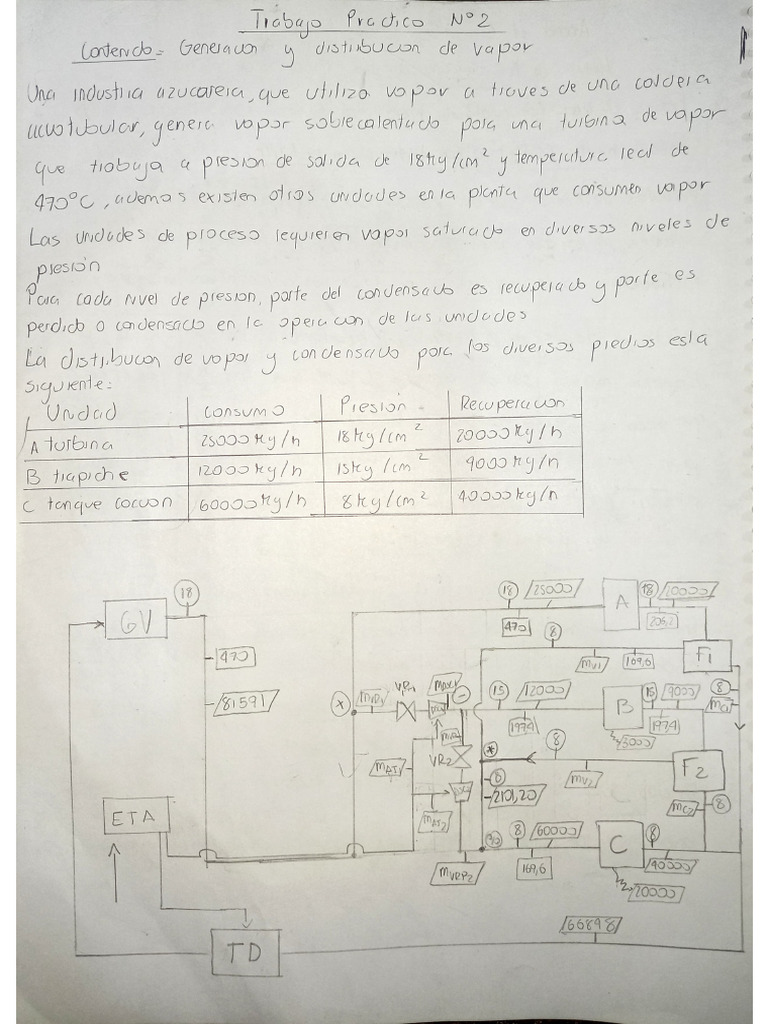 Trabajo Practico Nº2
Contenido = Generacion y distribucion de vapor
Una industria azucarera, que utiliza vapor a traves de una caldera
acuotubular, genera vapor sobrecalentado para una turbina de vapor
que trabaja a presion de salida de 18Kg/cm² y temperatura real de
470°C, ademas existen otras unidades en la planta que consumen vapor
Las unidades de proceso requieren vapor saturado en diversos niveles de
presión
Para cada nivel de presion, parte del condensado es recuperado y parte es
perdido o condensado en la operacion de las unidades
La distribucion de vapor y condensado para los diversos predios esta
siguiente:
Unidad Consumo Presion Recuperacion
A turbina 25000 Kg/h 18Kg/cm² 20000Kg/h
B trapiche 12000 Kg/h 15Kg/cm² 9000 Kg/h
C tanque coccion 60000 Kg/h 8Kg/cm² 40000 Kg/h
GV 18
470
81591
18 25000 A 18 20000
470 206,2
8
mv1 169,6 F1
x mVP1 VP1
15 12000 B 15 9000
197,4 197,4
3000
8
mC1
mAT1 VR2
* 8
mv2 F2
8
2101,20
mAT2
mC2 8
ETA
8 60000 C 8
mVRP2 169,6 40000
20000
66898
TD